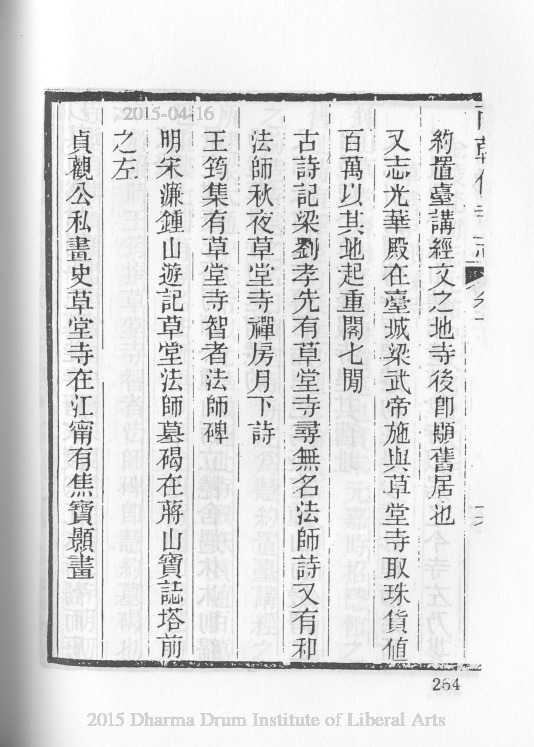 約置臺講經文之地寺後卽顒舊居也
又志光華殿在臺城梁武帝施與草堂寺取珠貨値
百萬以其地起重閣七閒
古詩記梁劉孝先有草堂寺尋無名法師詩又有和
法師秋夜草堂寺禪房月下詩
王筠集有草堂寺智者法師碑
明宋濂鍾山遊記草堂法師墓碣在蔣山寶誌塔前
之左
貞觀公私畫史草堂寺在江甯有焦寶顯畫
264
2015-04-16
2015 Dharma Drum Institute of Liberal Arts